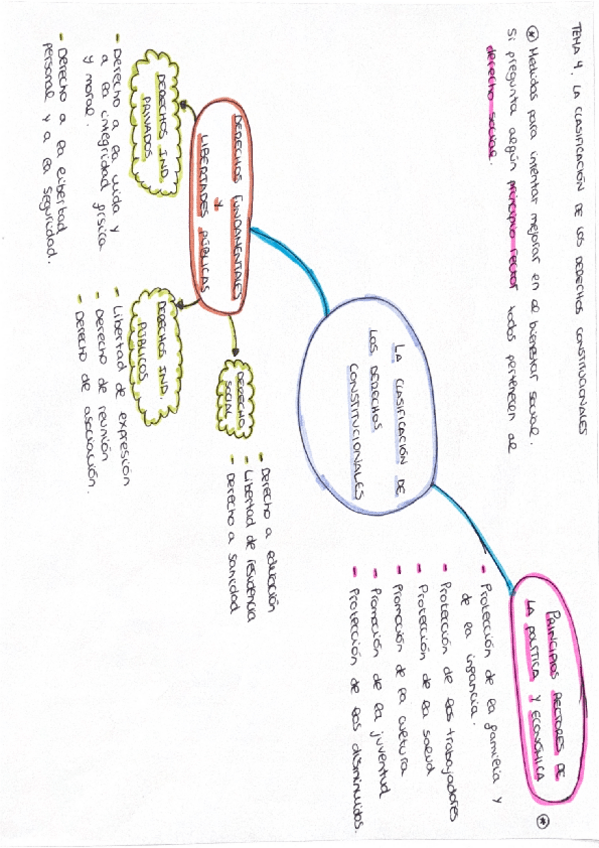 TEMA 4. LA CLASIFICACIÓN DE LOS DERECHOS CONSTITUCIONALES
* Medidas para intentar mejorar en el bienestar social.
Si pregunta algún principio rector todos pertenecen al
derecho social.
LA CLASIFICACIÓN DE
LOS DERECHOS
CONSTITUCIONALES
PRINCIPIOS RECTORES DE
LA POLÍTICA Y ECONÓMICA
*
- Protección de la familia y
de la infancia.
- Protección de los trabajadores
- Protección de la salud
- Promoción de la cultura
- Promoción de la juventud
- Protección de los disminuidos.
DERECHOS FUNDAMENTALES
Y
LIBERTADES PÚBLICAS
DERECHOS IND.
PRIVADOS
- Derecho a la vida y
a la integridad física
y moral.
- Derecho a la libertad
personal y a la seguridad.
DERECHOS IND.
PÚBLICOS
- Libertad de expresión
- Derecho de reunión
- Derecho de asociación.
DERECHO
SOCIAL
- Derecho a educación
- Libertad de residencia
- Derecho a sanidad